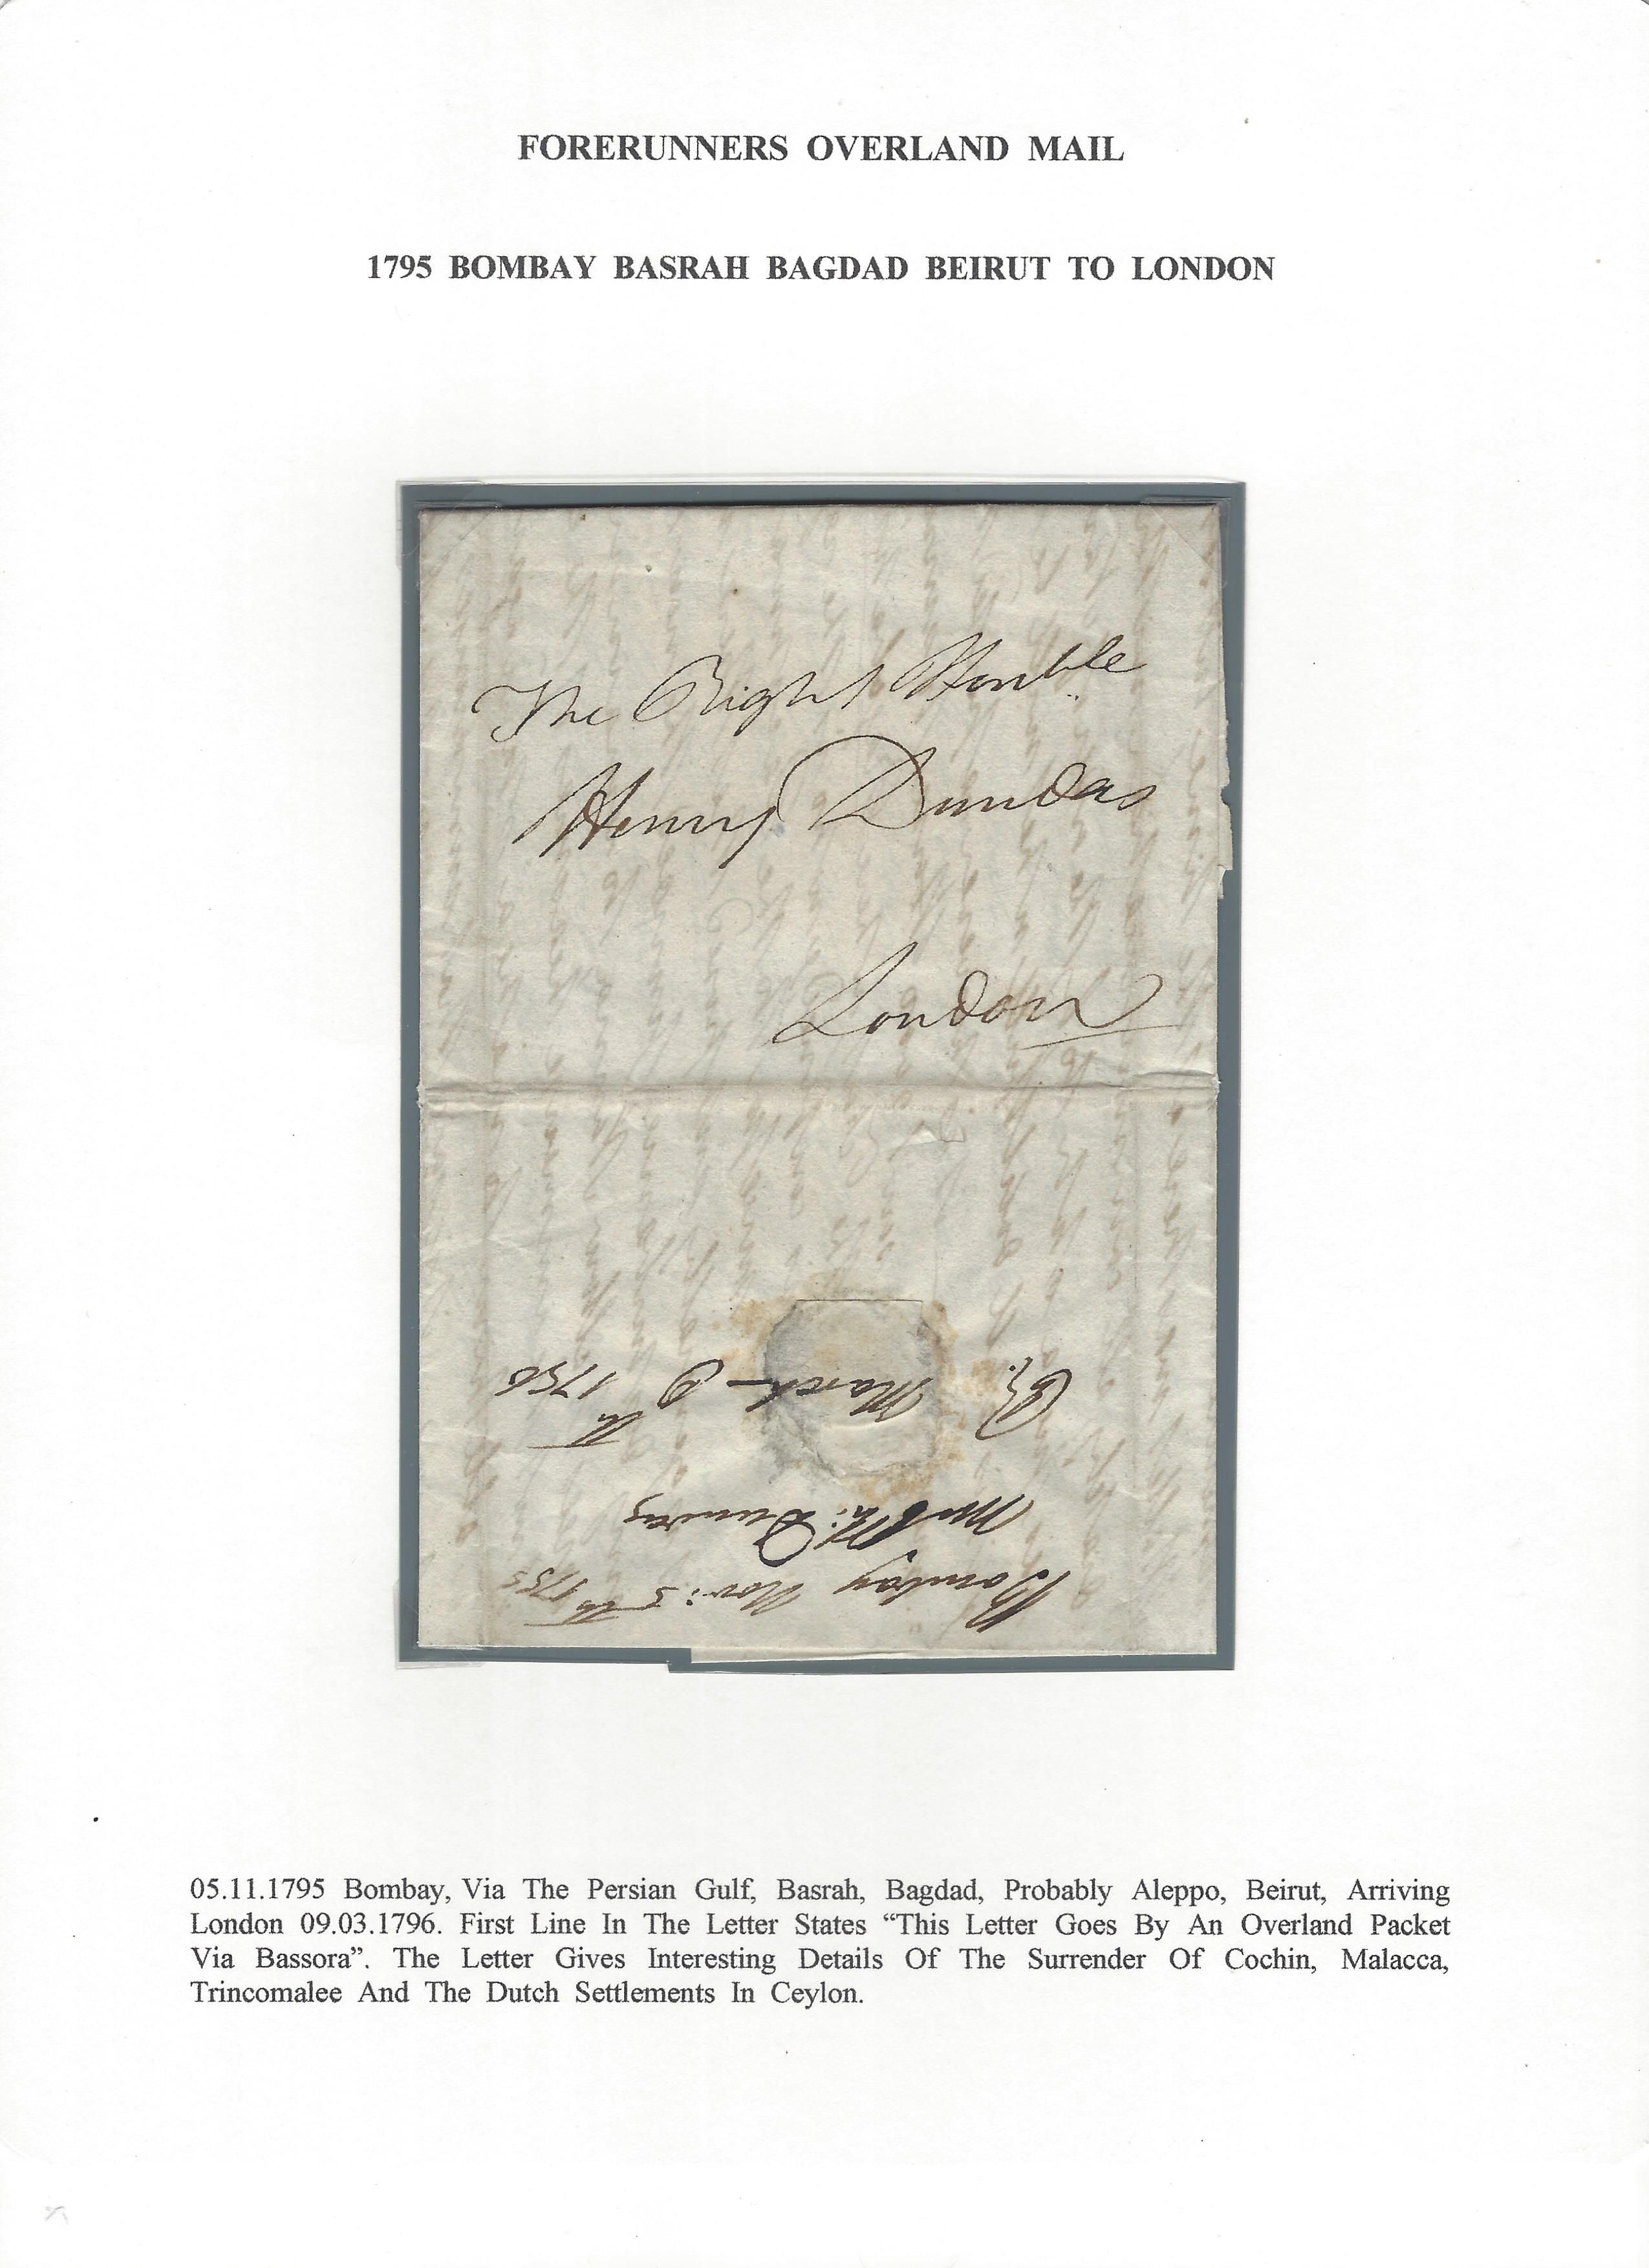 FORERUNNERS OVERLAND MAIL
1795 BOMBAY BASRAH BAGDAD BEIRUT TO LONDON
The Right Honble
Henry Dundas
London
Bombay Nov: 5th 1795
Dundas
March 9th 1796
05.11.1795 Bombay, Via The Persian Gulf, Basrah, Bagdad, Probably Aleppo, Beirut, Arriving
London 09.03.1796. First Line In The Letter States “This Letter Goes By An Overland Packet
Via Bassora”. The Letter Gives Interesting Details Of The Surrender Of Cochin, Malacca,
Trincomalee And The Dutch Settlements In Ceylon.